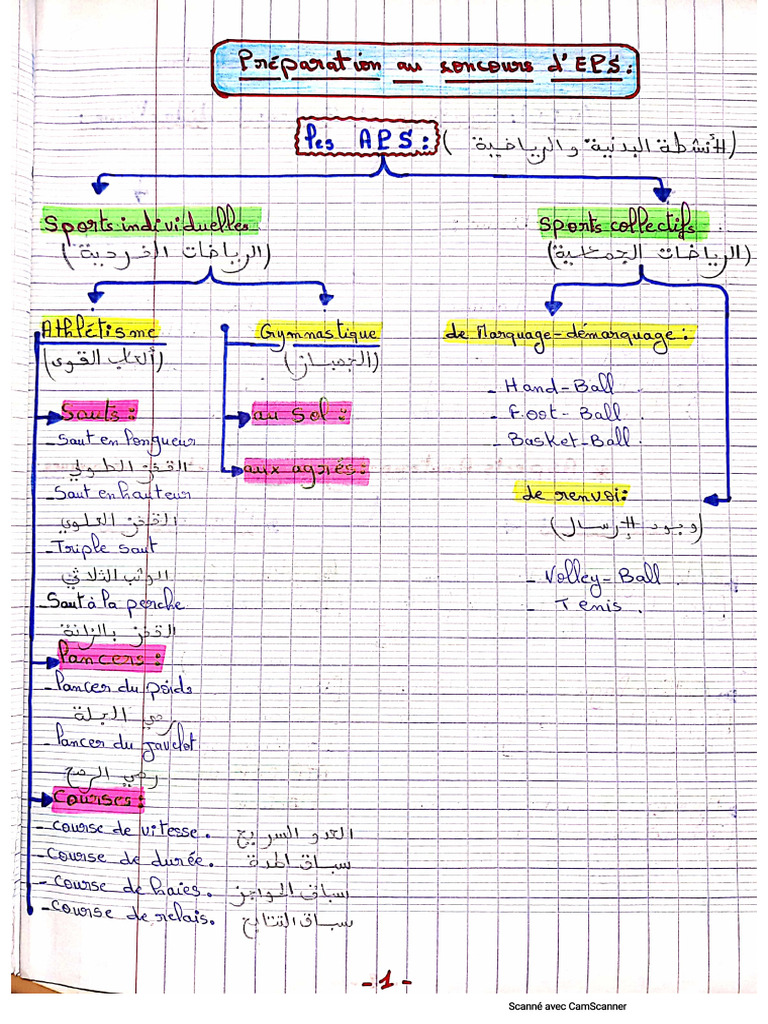 Préparation au concours d'EPS.
Les APS: (الأنشطة البدنية والرياضية)
Sports individuelles
(الرياضات الفردية)
Sports collectifs
(الرياضات الجماعية)
Athlétisme
(ألعاب القوى)
Sauts:
- Saut en longueur
القفز الطولي
- Saut en hauteur
القفز العلوي
- Triple saut
الوثب الثلاثي
- Saut à la perche
القفز بالزانة
Lancers:
- Lancer du poids
رمي الجلة
- Lancer du javelot
رمي الرمح
Courses:
- Course de vitesse. العدو السريع
- Course de durée. سباق المدة
- Course de haies. سباق الحواجز
- Course de relais. سباق التتابع
Gymnastique
(الجمباز)
au Sol:
aux agrés:
de Marquage-démarquage:
- Hand-Ball
- Foot-Ball
- Basket-Ball.
de renvoi:
(وجود الإرسال)
- Volley-Ball.
- Tenis.
-1-
Scanné avec CamScanner